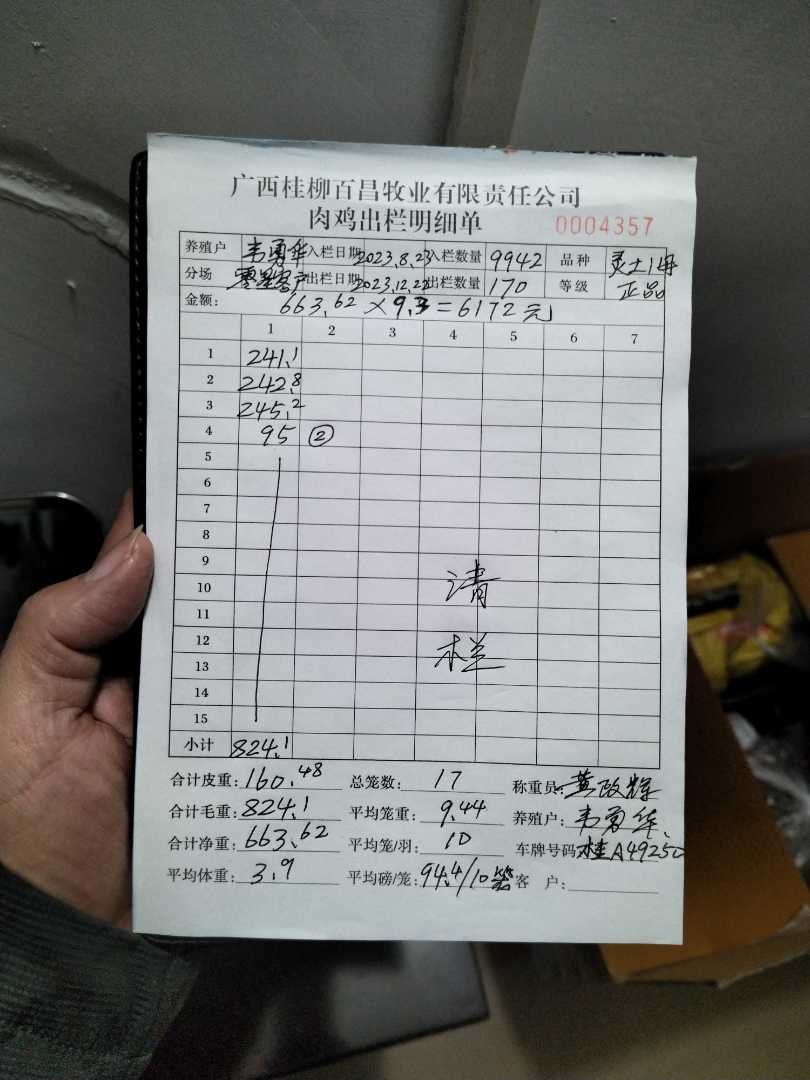 广西桂柳百昌牧业有限责任公司
肉鸡出栏明细单 0004357
养殖户 韦勇华 入栏日期 2023.8.23 入栏数量 9942 品种 灵土1号
分场 零星客户 出栏日期 2023.12.22 出栏数量 170 等级 正品
金额: 663.62×9.3=6172元
1 2 3 4 5 6 7
1 241.1
2 242.8
3 245.2
4 95 ②
5
6
7
8
9
10 清
11
12
13 栏
14
15
小计 824.1
合计皮重: 160.48 总笼数: 17 称重员: 黄政辉
合计毛重: 824.1 平均笼重: 9.44 养殖户: 韦勇华
合计净重: 663.62 平均笼/羽: 10 车牌号码: 桂A49250
平均体重: 3.9 平均磅/笼: 94.4/10 客 户: